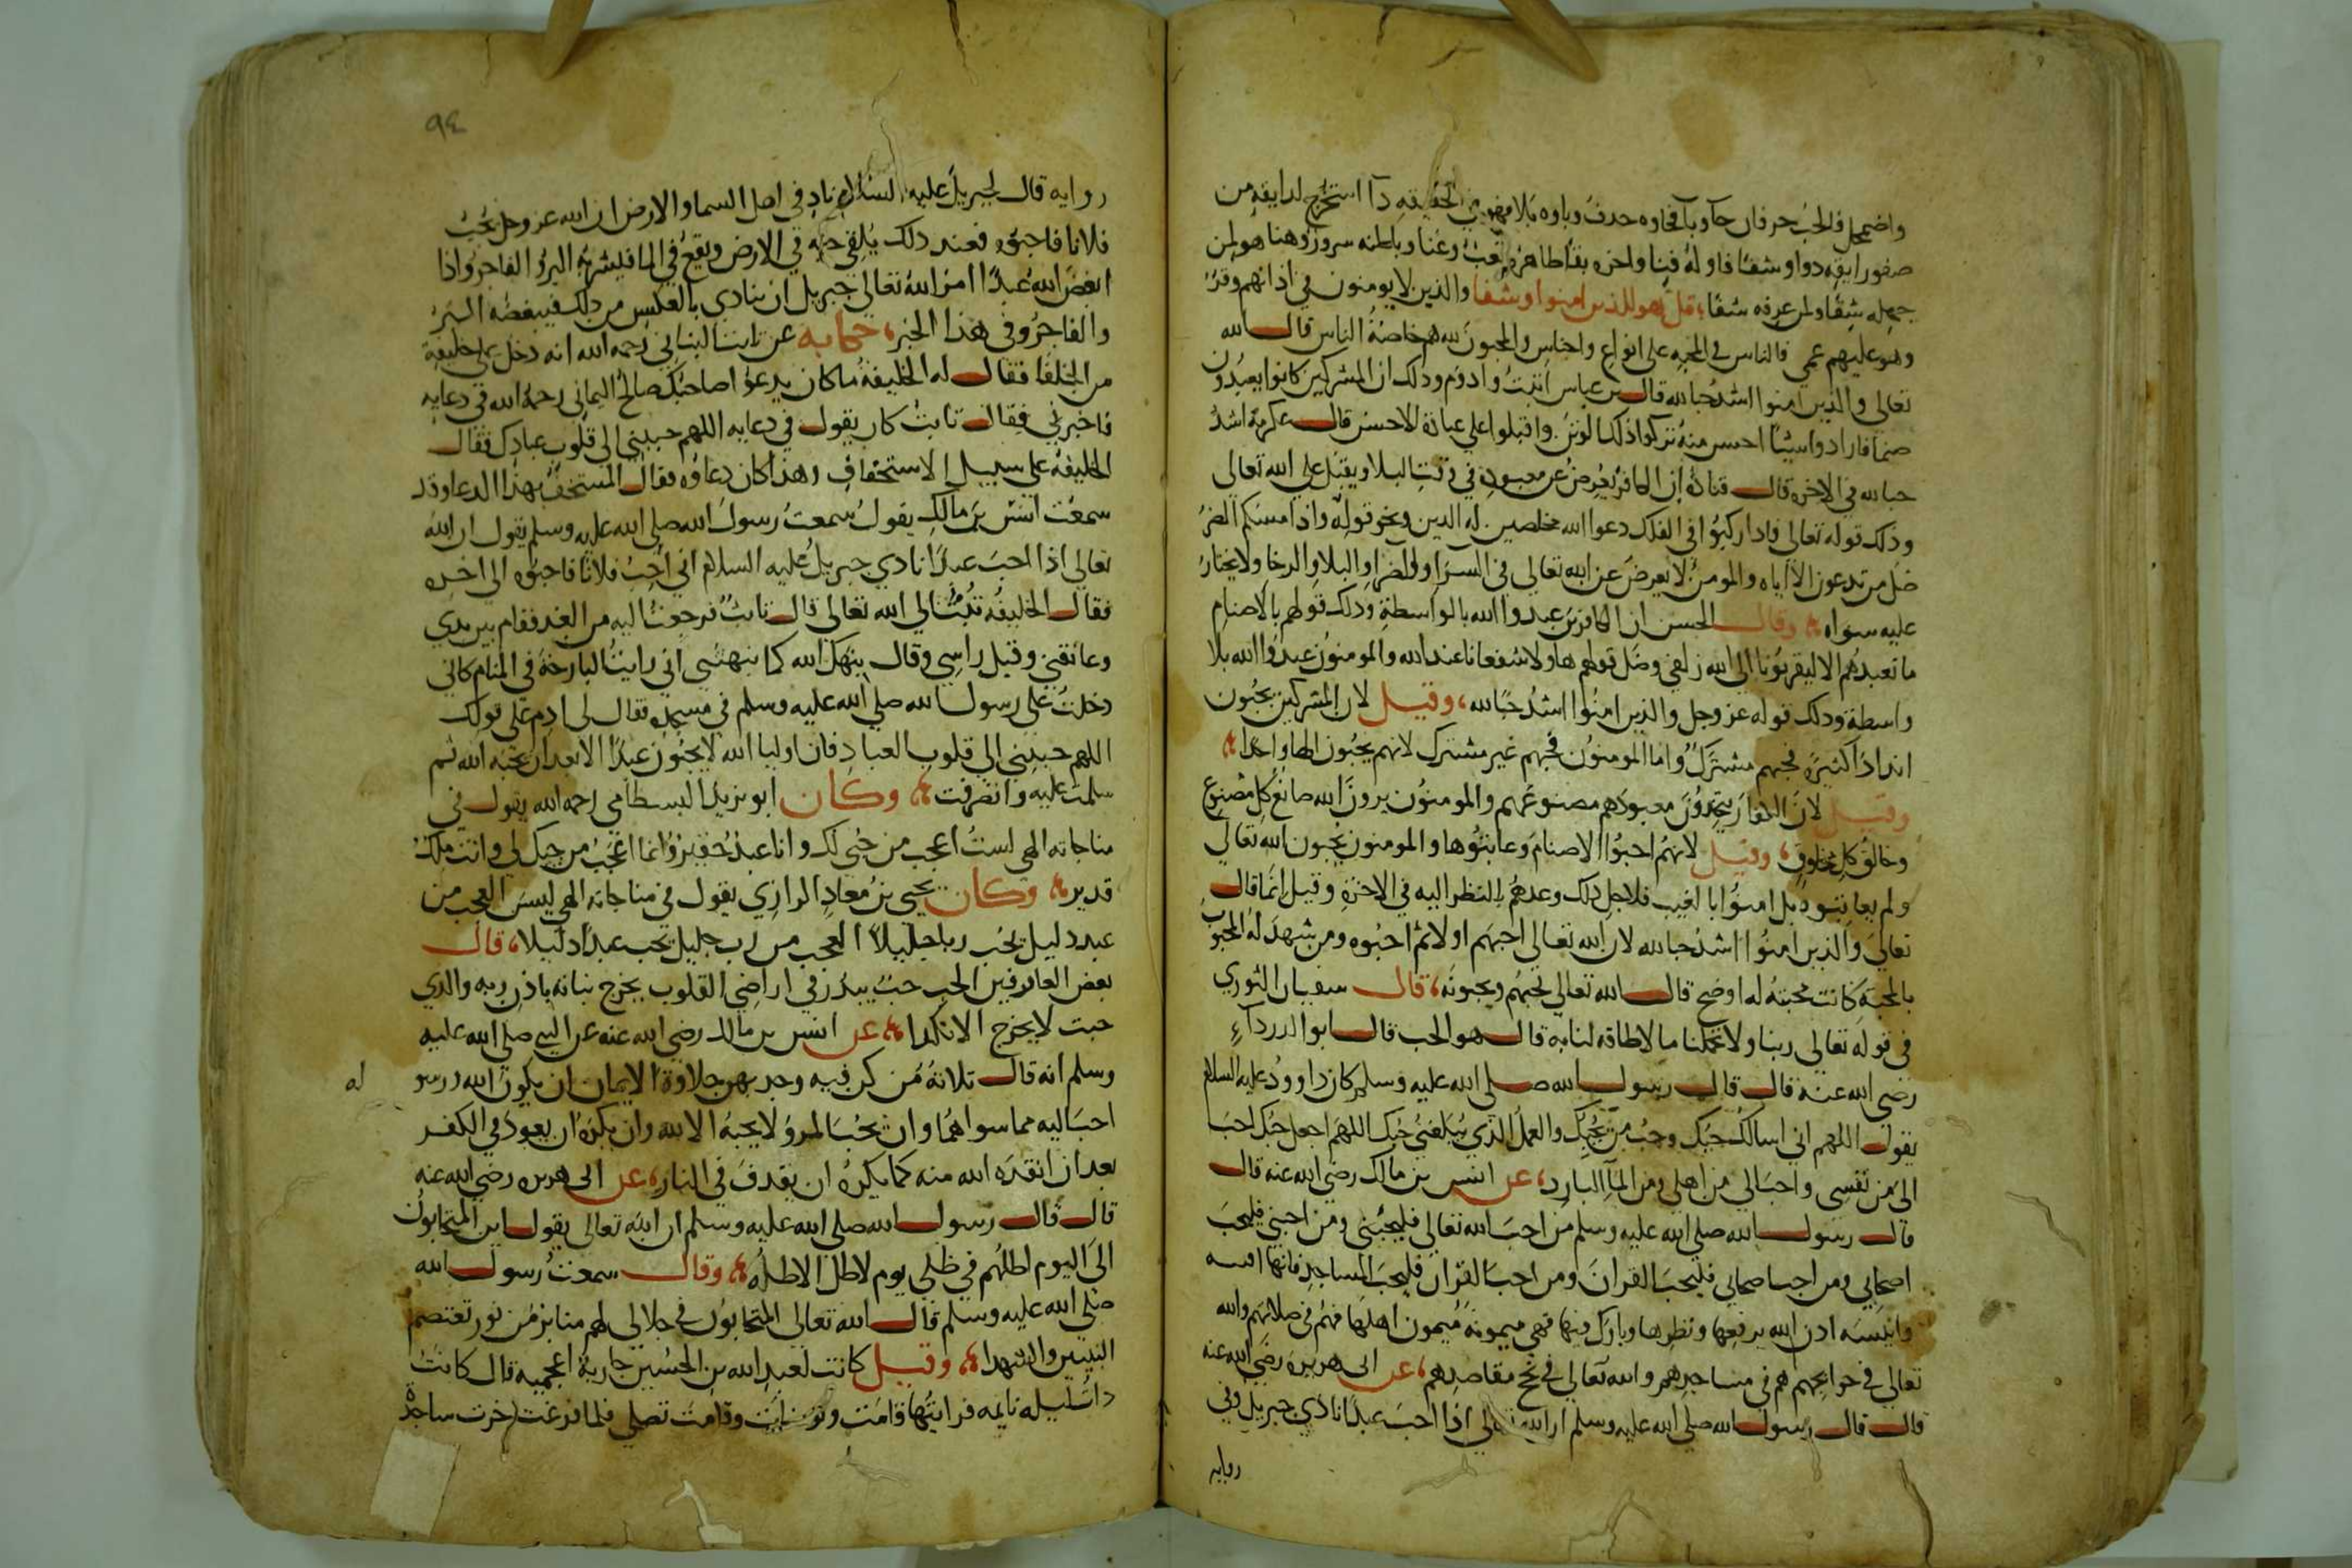 واضمحل فالحب حرفان حآ وبآ فحاوه حدف وباوه بلا فهو في الحقيقه دآ استخرج لدايقه من
صفو رايقه دوا وشفا فاوله فينا واخره بقا ظاهره تعب وعنا وباطنه سرور وهنا هو لمن
جهله شقا ولمن عرفه شفا، قل هو للذين امنوا وشفا والذين لايومنون في اذانهم وقر
وهو عليهم عمي فالناس في المحبه على انواع واجناس والمحبون لله هم خاصة الناس قال الله
تعالى والذين امنوا اشد حبا لله قال بن عباس اثبت وادوم وذلك ان المشركين كانوا يعبدون
صنما فارادوا شيئا احسن منه تركوا ذلك الوثن واقبلوا على عبادة الاحسن قال عكرمة اشد
حبا لله في الاخره قال قتادة ان الكافر يعرض عن معبوده في وقت البلا ويقبل على الله تعالى
وذلك قوله تعالى فاذا ركبوا في الفلك دعوا الله مخلصين له الدين ونحو قوله واذا مسكم الضر
ضل من تدعون الا اياه والمومن لا يعرض عن الله تعالى في السرا والضرا والبلا والرخا ولا يختار
عليه سواه وقال الحسن ان الكافرين عبدوا الله بالواسطة وذلك قولهم بالاصنام
ما نعبدهم الا ليقربونا الى الله زلفى ومثل قولهم هاولا شفعانا عند الله والمومنون عبدوا الله بلا
واسطة وذلك قوله عز وجل والذين امنوا اشد حبا لله، وقيل لان المشركين يحبون
اندادا كثيرة فحبهم مشترك واما المومنون فحبهم غير مشترك لانهم يحبون الها واحدا
وقيل لان الكفار يتخذون معبودهم مصنوعهم والمومنون يرون الله صانع كل مصنوع
وخالق كل مخلوق، وقيل لانهم احبوا الاصنام وعاينوها والمومنون يحبون الله تعالى
ولم يعاينوه بل امنوا بالغيب فلاجل ذلك وعدهم بالنظر اليه في الاخرة وقيل انما قال
تعالى والذين امنوا اشد حبا لله لان الله تعالى احبهم اولا ثم احبوه ومن شهد له المحبوب
بالمحبة كانت محبته له اوضح قال الله تعالى يحبهم ويحبونه، قال سفيان الثوري
في قوله تعالى ربنا ولا تحملنا ما لا طاقه لنا به قال هو الحب قال ابو الدرداء
رضى الله عنه قال قال رسول الله صلى الله عليه وسلم كان داوود عليه السلام
يقول اللهم اني اسالك حبك وحب من يحبك والعمل الذي يبلغني حبك اللهم اجعل حبك احب
الى من نفسي واحب الي من اهلى ومن المآ البارد، عن انس بن مالك رضى الله عنه قال
قال رسول الله صلى الله عليه وسلم من احب الله تعالى فليحبني ومن احبني فليحب
اصحابي ومن احب اصحابي فليحب القران ومن احب القران فليحب المساجد فانها افنيه
وابنيه اذن الله برفعها وتطهرها وبارك فيها فهي ميمونه ميمون اهلها فهم في صلاتهم والله
تعالى في حوايجهم هم في مساجدهم والله تعالى في نجح مقاصدهم، عن ابى هريره رضى الله عنه
قال قال رسول الله صلى الله عليه وسلم ان الله تعالى اذا احب عبدا نادى جبريل وفي
روايه
٩٤
روايه قال لجبريل عليه السلام ناد في اهل السما والارض ان الله عز وجل يحب
فلانا فاحبوه فعند ذلك يلقى حبه في الارض ويقع في الما فيشربه البر والفاجر واذا
ابغض الله عبدا امر الله تعالى جبريل ان ينادي بالعكس من ذلك فيبغضه البر
والفاجر وفى هذا الخبر، حكايه عن ثابت البناني رحمه الله انه دخل على خليفة
من الخلفا فقال له الخليفة ما كان يدعوا صاحبك صالح اليماني رحمه الله في دعايه
فاخبرني فقال ثابت كان يقول في دعايه اللهم حببني الى قلوب عبادك فقال
الخليفة على سبيل الاستخفاف وهذا كان دعاوه فقال المستخف بهذا الدعا وقد
سمعت انس بن مالك يقول سمعت رسول الله صلى الله عليه وسلم يقول ان الله
تعالى اذا احب عبدا نادي جبريل عليه السلام انى احب فلانا فاحبوه الى اخره
فقال الخليفه تبت الي الله تعالى قال ثابت فرجعت اليه من الغد فقام بين يدي
وعانقني وقبل راسي وقال ينبهك الله كما نبهتني اني رايت البارحة في المنام كاني
دخلت على رسول الله صلى الله عليه وسلم في مسجده فقال لي ادم على قولك
اللهم حببني الي قلوب العباد فان اوليا الله لا يحبون عبدا الا بعد ان يحبه الله ثم
سلمت عليه وانصرفت وكان ابو يزيد البسطامي رحمه الله يقول في
مناجاته الهى لست اعجب من حبى لك وانا عبد حقير وانما اعجب من حبك لى وانت ملك
قدير وكان يحيى بن معاد الرازي يقول في مناجاته الهى ليس العجب من
عبد دليل يحب ربا جليلا العجب من رب جليل يحب عبدا دليلا، قال
بعض العارفين الحب حب يبذر في اراضي القلوب يخرج نباته باذن ربه والذي
خبث لا يخرج الا نكدا، عن انس بن مالك رضي الله عنه عن النبي صلى الله عليه
وسلم انه قال ثلاثة من كن فيه وجد بهن حلاوة الايمان ان يكون الله ورسو له
احب اليه مما سواهما وان يحب المرؤ لا يحبه الا لله وان يكره ان يعود في الكفر
بعد ان انقده الله منه كما يكره ان يقدف في النار، عن ابى هريره رضي الله عنه
قال قال رسول الله صلى الله عليه وسلم ان الله تعالى يقول اين المتحابون
الي اليوم اظلهم في ظلي يوم لا ظل الا ظله، وقال سمعت رسول الله
صلى الله عليه وسلم قال الله تعالى المتحابون في جلالى لهم منابر من نور تغبطهم
النبيين والشهدا، وقيل كانت لعبد الله بن الحسين جارية اعجميه قال كانت
ذات ليله نايمه فرايتها قامت وتوضات وقامت تصلى فلما فرغت خرت ساجدة